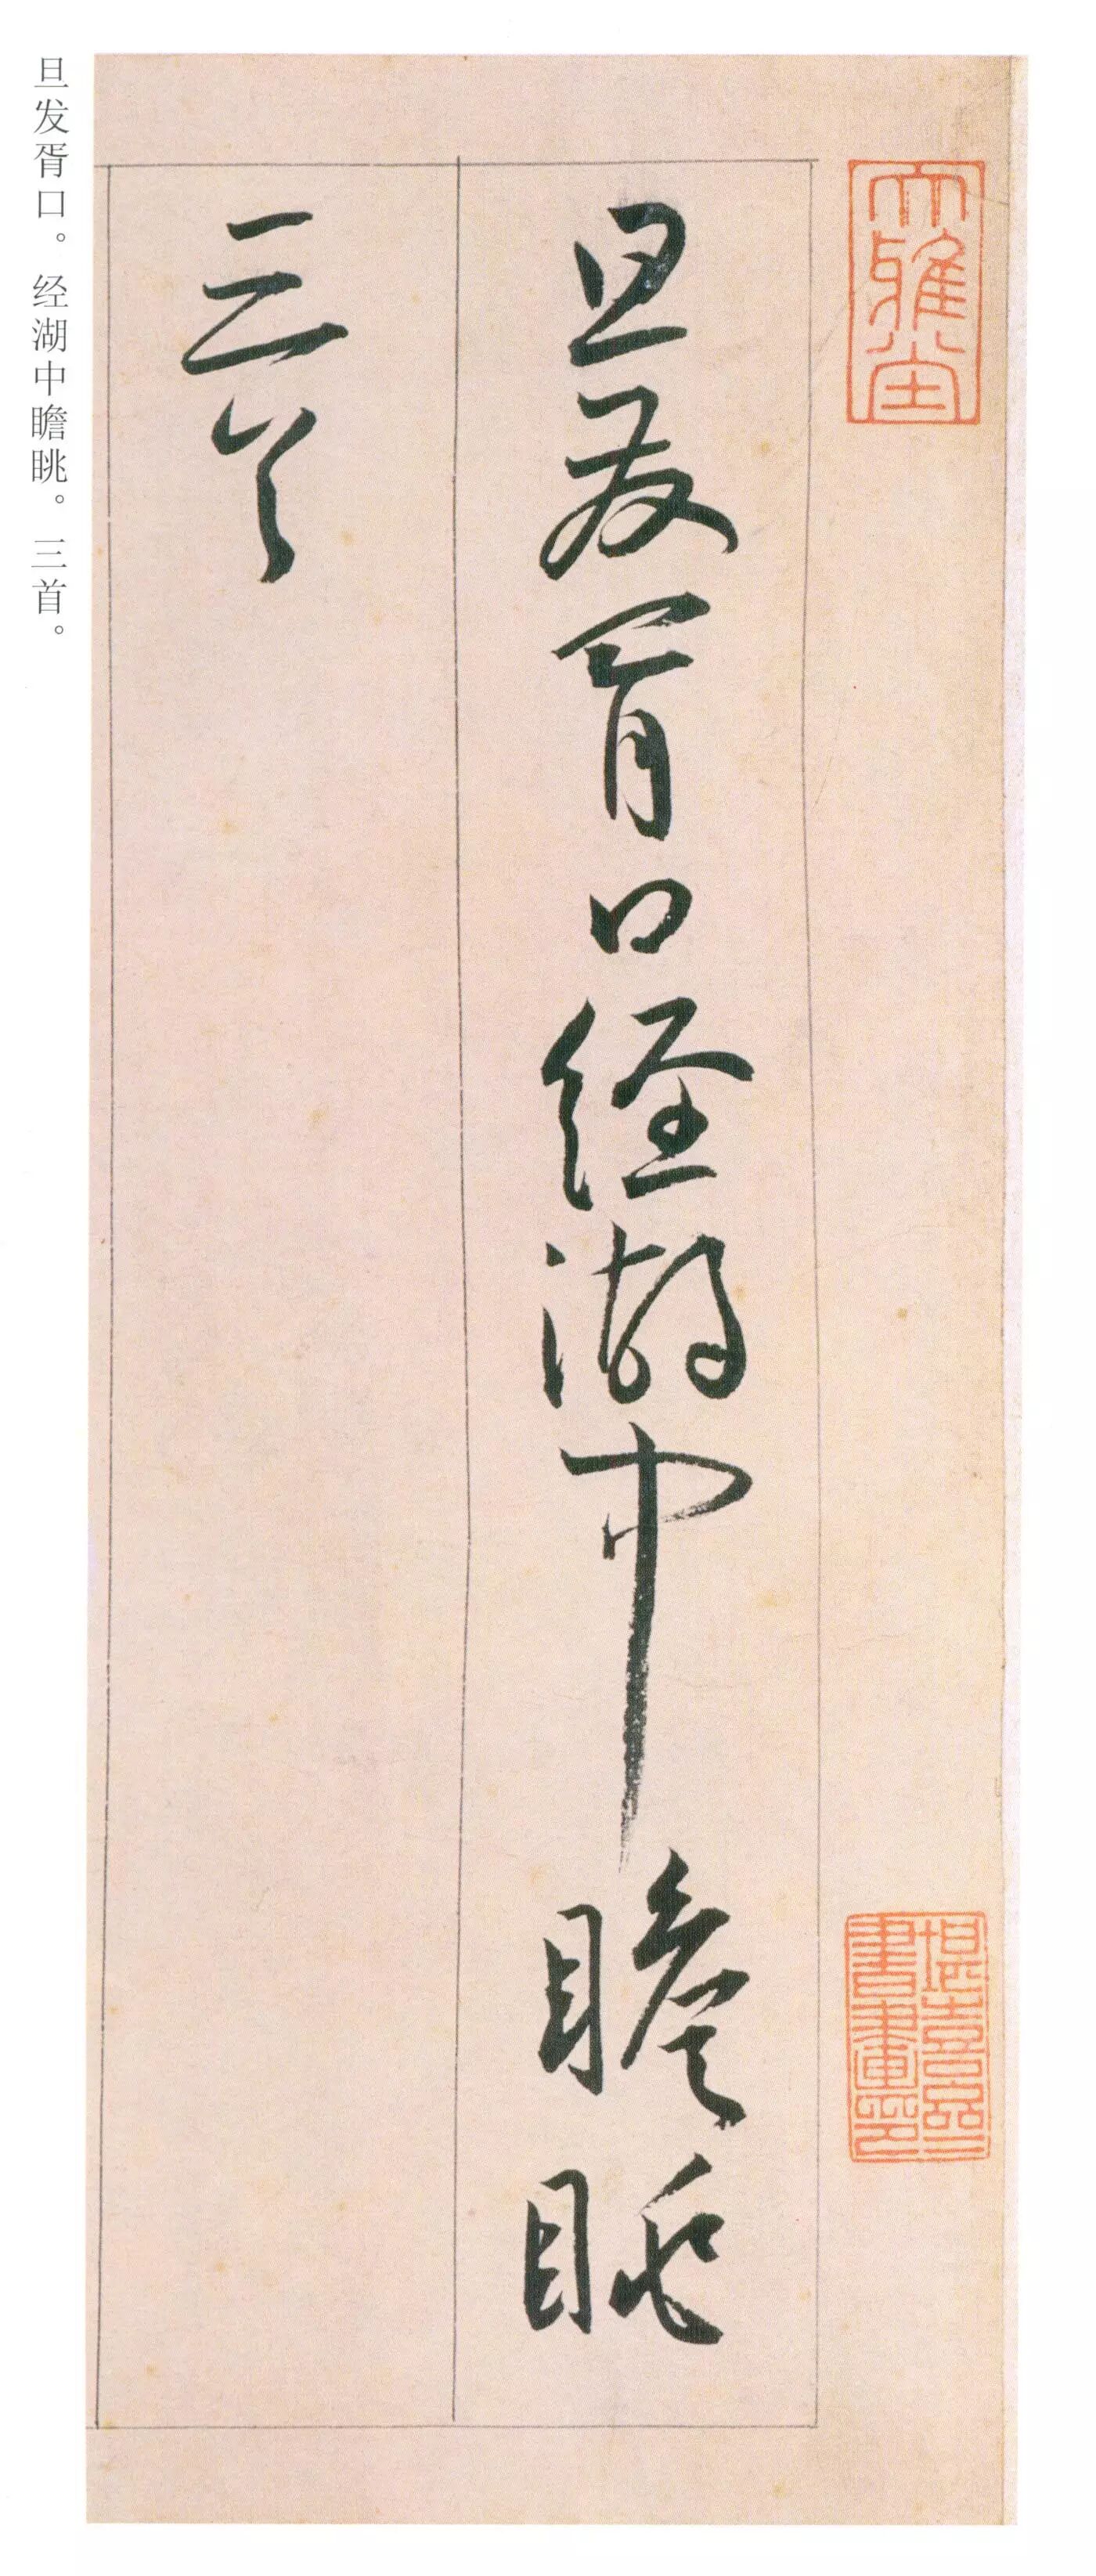 大雅堂
旦发胥口经湖中瞻眺
三首
旦发胥口。经湖中瞻眺。三首。